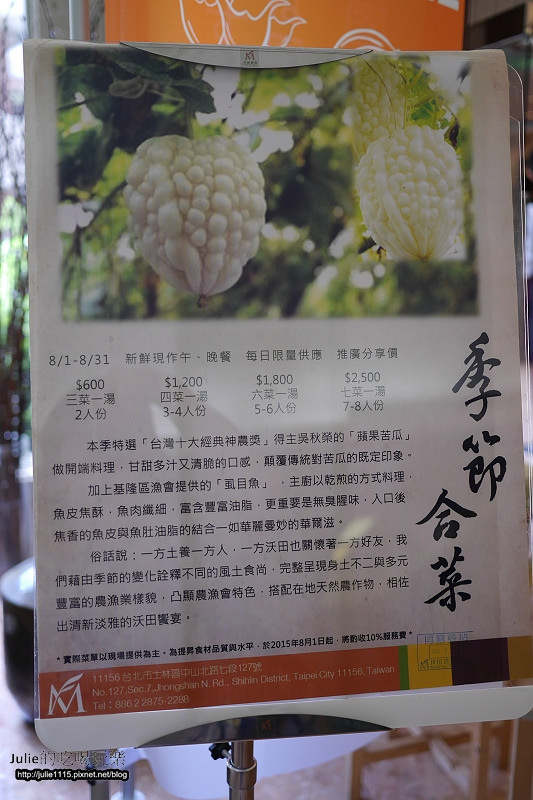 8/1-8/31 新鮮現作午、晚餐 每日限量供應 推廣分享價
$600 $1,200 $1,800 $2,500
三菜一湯 四菜一湯 六菜一湯 七菜一湯
2人份 3-4人份 5-6人份 7-8人份
季節合菜
本季特選「台灣十大經典神農獎」得主吳秋榮的「蘋果苦瓜」
做開端料理，甘甜多汁又清脆的口感，顛覆傳統對苦瓜的既定印象。
加上基隆區漁會提供的「虱目魚」，主廚以乾煎的方式料理，
魚皮焦酥，魚肉纖細，富含豐富油脂，更重要是無臭腥味，入口後
焦香的魚皮與魚肚油脂的結合一如華麗曼妙的華爾滋。
俗話說：一方土養一方人，一方沃田也關懷著一方好友，我
們藉由季節的變化詮釋不同的風土食尚，完整呈現身土不二與多元
豐富的農漁業樣貌，凸顯農漁會特色，搭配在地天然農作物，相佐
出清新淡雅的沃田饗宴。
*實際菜單以現場提供為主。為提昇食材品質與水平，於2015年8月1日起，將酌收10%服務費*
11156台北市士林區中山北路七段127號
No.127,Sec.7,Jhongshan N. Rd., Shihlin District, Taipei City 11156, Taiwan
Tel：886 2 2875-2288
Julie的吃喝玩樂
http://julie1115.pixnet.net/blog